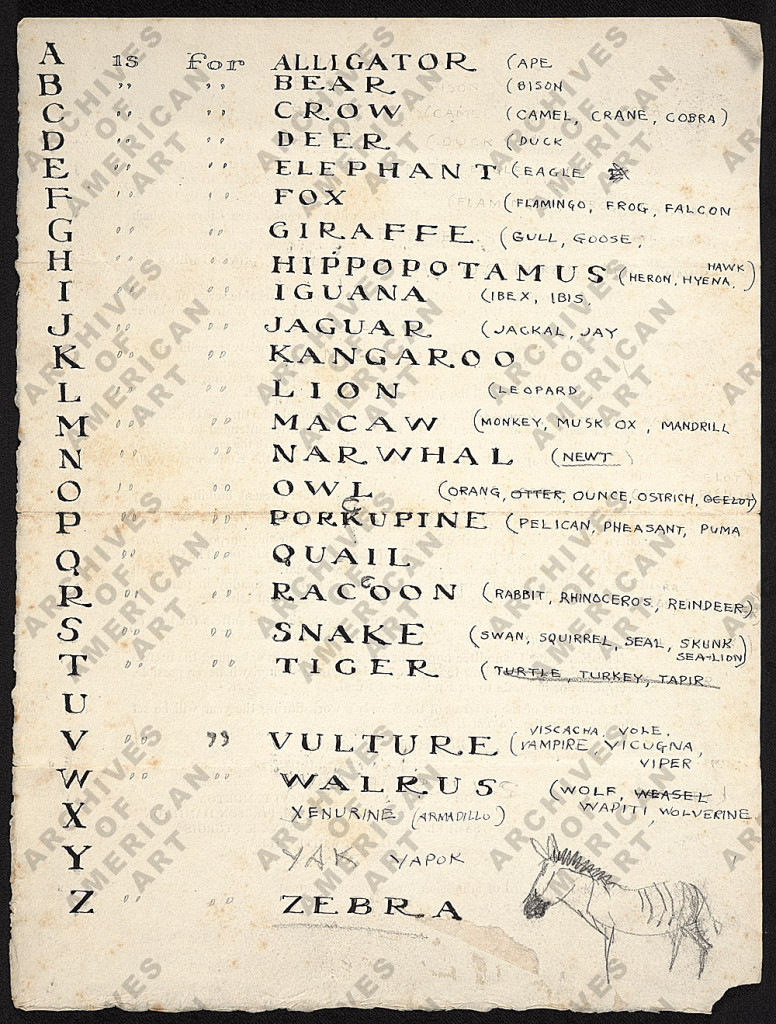 A is for ALLIGATOR (APE
B " " BEAR (BISON
C " " CROW (CAMEL, CRANE, COBRA)
D " " DEER (DUCK
E " " ELEPHANT (EAGLE
F " " FOX (FLAMINGO, FROG, FALCON
G " " GIRAFFE (GULL, GOOSE,
H " " HIPPOPOTAMUS (HERON, HYENA, HAWK)
I " " IGUANA (IBEX, IBIS,
J " " JAGUAR (JACKAL, JAY
K " " KANGAROO
L " " LION (LEOPARD
M " " MACAW (MONKEY, MUSK OX, MANDRILL
N " " NARWHAL (NEWT)
O " " OWL (ORANG, OTTER, OUNCE, OSTRICH, OCELOT)
P " " PORKUPINE (PELICAN, PHEASANT, PUMA
C
Q " " QUAIL
R " " RACOON (RABBIT, RHINOCEROS, REINDEER)
C
S " " SNAKE (SWAN, SQUIRREL, SEAL, SKUNK
SEA-LION)
T " " TIGER (TURTLE, TURKEY, TAPIR
U
V " " VULTURE (VISCACHA, VOLE,
VAMPIRE, VICUGNA,
VIPER
W " " WALRUS (WOLF, WEASEL
WAPITI, WOLVERINE
X XENURINE (ARMADILLO)
Y YAK YAPOK
Z " " ZEBRA
ARCHIVES OF AMERICAN ART